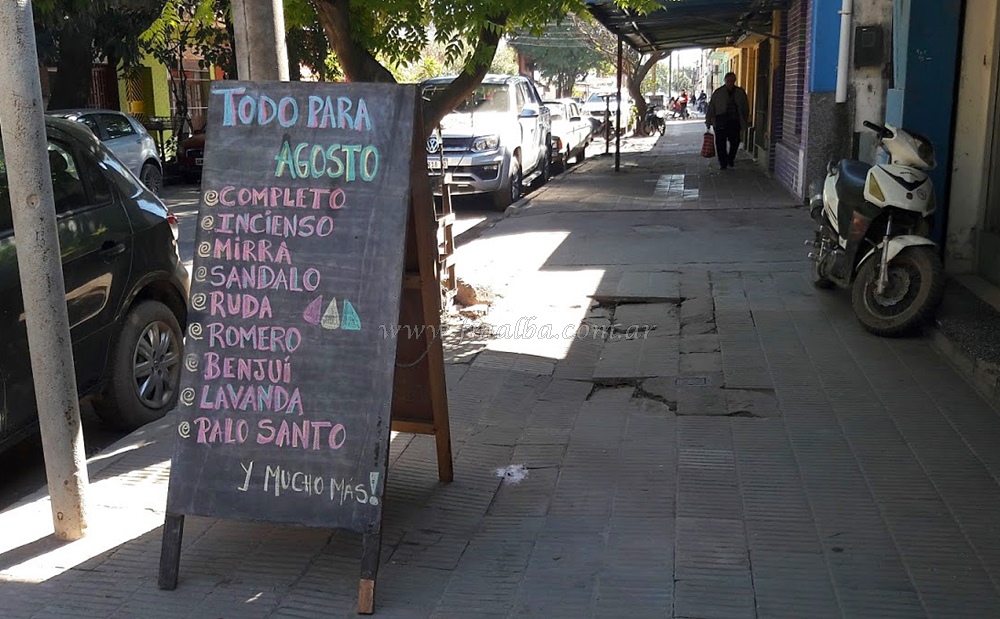 TODO PARA
AGOSTO
COMPLETO
INCIENSO
MIRRA
SANDALO
RUDA
ROMERO
BENJUÍ
LAVANDA
PALO SANTO
Y MUCHO MÁS!